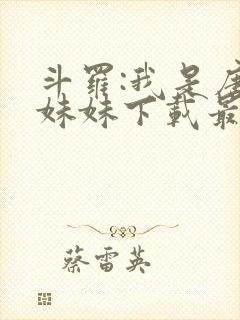 斗羅:我是唐
妹妹下載最
蔡雷英